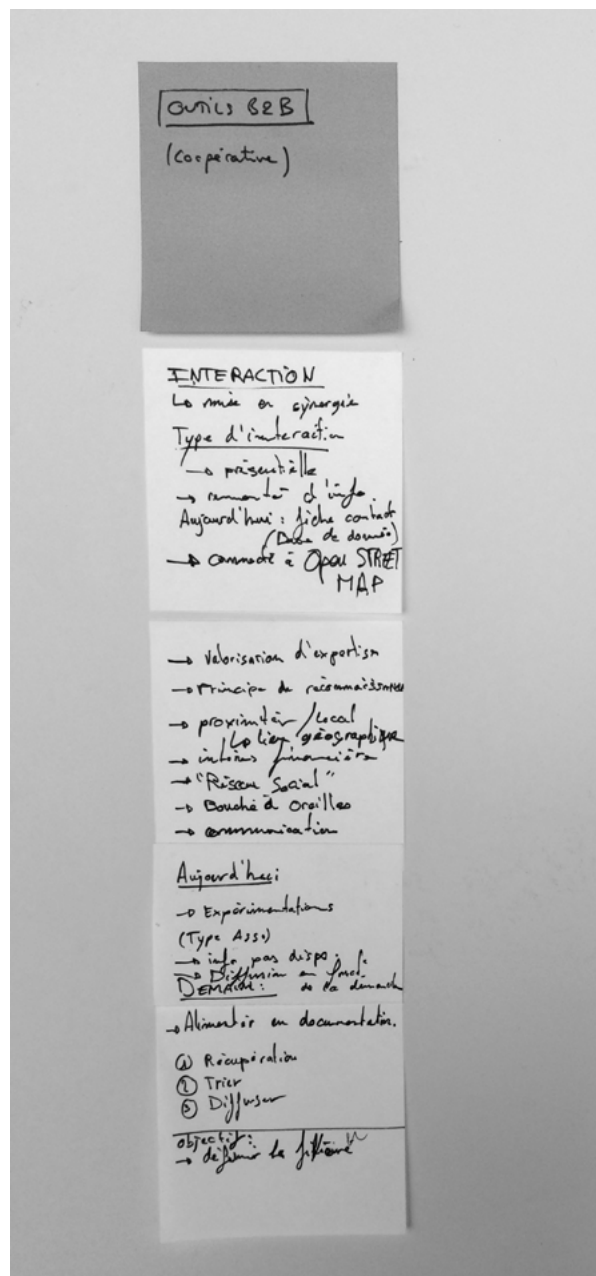 OUTILS B2B
(Coopérative)
INTERACTION
La mise en synergie
Type d'interaction
→ présentielle
→ d'info.
Aujourd'hui : fiche contact
(Base de donnée)
→ connecté à Open STREET
MAP
→ Valorisation d'expertise
→ Principe de
→ proximité / local
↳ lien géographique
→ financière
→ "Réseau Social"
→ Bouche à Oreilles
→ communication
Aujourd'hui
→ Expérimentations
(Type Asso)
→ info pas dispo.
→ Diffusion en
DEMAIN : de la demande
→ Alimenter en documentation.
① Récupération
② Trier
③ Diffuser
objectif :
→ définir la